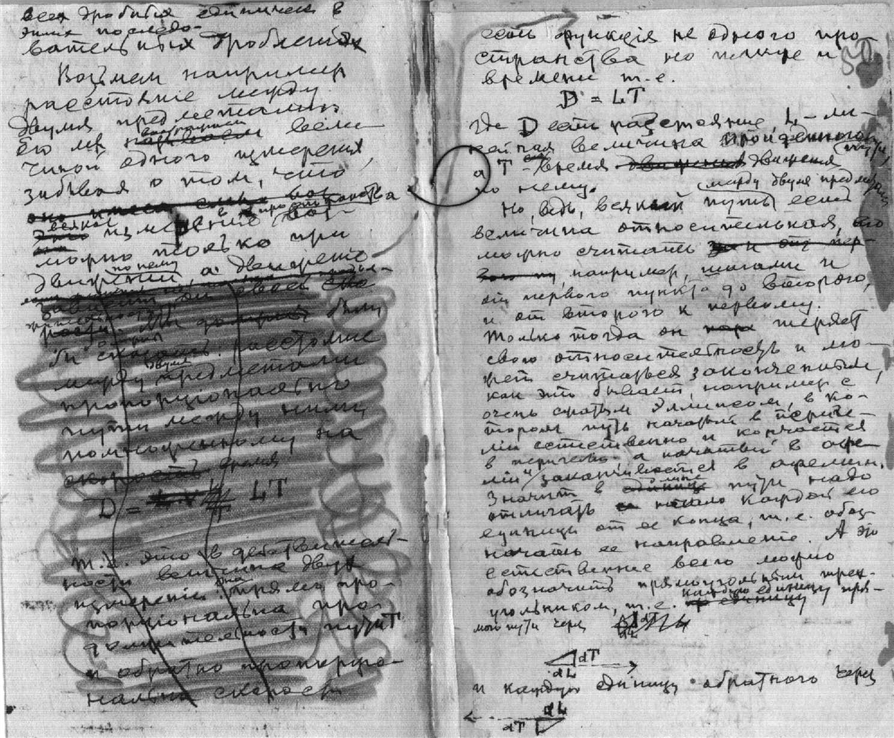 всех дробится единичек в
этих последо-
вательных дроблениях
Возьмем например
расстояніе между
двумя предметами
Его мы выражаем вели-
чиной одного измеренія,
забывая о том, что
всякое измереніе пространства воз-
можно только при
движеніи по нему, а движеніе
бы сказать: расстояніе
между двумя предметами
пропорціонально
пути между ними
помноженному на
время
D = LT
т.е. это в действитель-
ности величина двух
измерений: она прямо про-
порціональна про-
должительности пути T
и обратно пропорціо-
нальна скорости
есть функція не одного про-
странства но также и
времени т.е.
D = LT
где D есть расстояние L - ли-
нейная величина пройденного
пути
а T - время движения
по нему. (между двумя предметами
Но ведь, всякий путь есть
величина относительная, его
можно считать
например, шагами и
от первого пункта до второго,
и от второго к первому.
Только тогда он теряет
свою относительность и мо-
жет считаться законченным,
как это бывает, например с
очень сжатым эллипсом, в ко-
тором путь начатый в периге-
лии естественно и кончается
в перигелии а начатый в афе-
лии заканчивается в афелии.
Значит в пути надо
отличать начало каждой его
единицы от ее конца, т.е. обоз-
начать ее направление. А это
естественнее всего можно
обозначить прямоугольным треу-
гольником, т.е. каждую единицу пря-
мого пути через
dT
dL
и каждую единицу обратного через
dL
dT